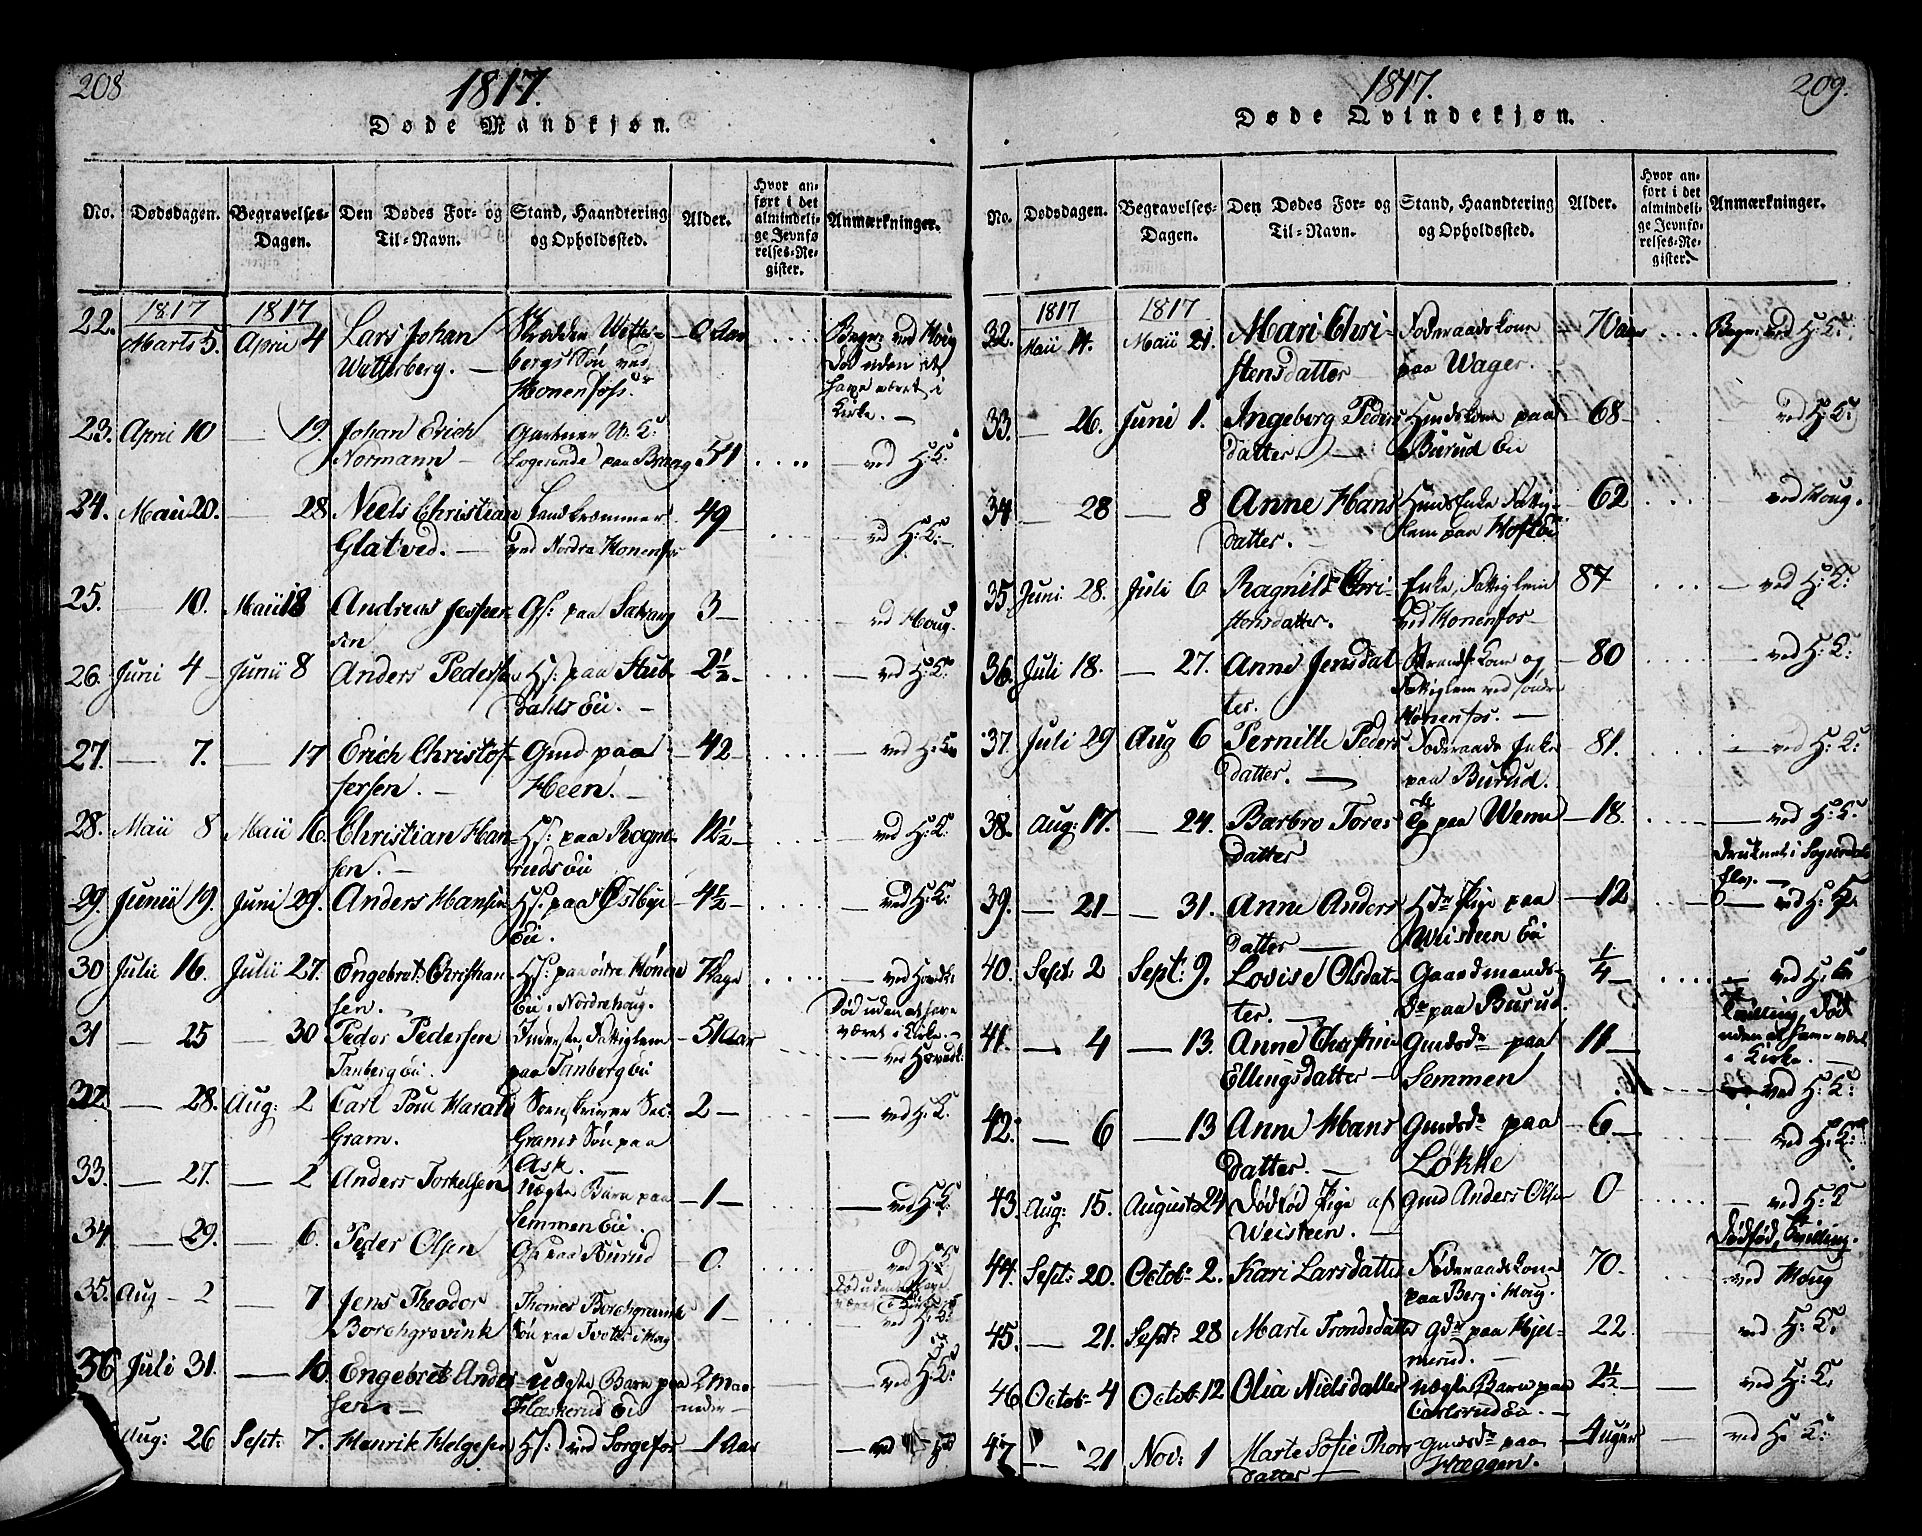 208
1817.
Døde Mandkjøn.
No. Dødsdagen. Begravelses-Dagen. Den Dødes For- og Til-Navn. Stand, Haandtering og Opholdssted. Alder. Hvor anført i det almindelige Jevnførelses-Register. Anmærkninger.
1817 1817
22. Marts 5. April 4 Lars Johan
Wetterberg.
bergs Søn ved
Honenfoss.
Død uden at
have været i
Kirke.
23. April 10 19. Johan Erich
Normann
Gartner
paa 51 ved H: K:
24. Maii 20. 28 Niels Christian
Glatved.
Landkræmmer
ved Nordre Honenfos
49 ved H: K:
25. 10. Maii 18 Andreas Jesper-
sen
Gs: paa
3 ved Houg.
26. Juni 4 Junii 8 Anders Peders
Hs: paa Stub-
dahls Eii.
2½ ved H: K:
27. 7. 17 Erich Christof-
fersen.
Gmd paa
Heen.
42 ved H: K:
28. Maii 8 Maii 16. Christian Han-
sen.
Hs: paa Rogne-
ruds Eii
12½ ved H: K:
29. Junii 19. Juni 29. Anders Hansen
Hs: paa Østbye
Eii.
4½ ved H: K:
30 Julii 16. Julii 27. Engebret Christian
sen.
Hs: paa Hønen
Eii i Nordrehoug.
7 Dage ved
Død uden at have
været i Kirke.
31 25 30 Peder Pedersen
Tanberg Eii.
Inderste, Fattiglem
paa Tanberg Eii
51 Aar ved
32. 28. Aug: 2 Carl Harald
Gram.
Sorenskriver
Grams Søn paa
Ask.
2 ved H: K:
33. 27. 2 Anders Torkelsen
uægte Barn paa
Semmen Eii.
1 ved H: K:
34 29. 6. Peder Olsen
paa Burud
0. ved H: K:
35. Aug 2 7 Jens Theodor
Borchgrevink
Thomes Borchgrevink
Søn paa i Houg
1 ved H: K:
36 Juli 31. 10. Engebret Ander
sen
uægte Barn paa
Flaskerud Eii
2 Maa-
neder
ved H: K:
Aug: 26 Sept: 7. Henrik Helgesen
Hs: ved Sorgefos
1 Aar ved
209.
1817.
Døde Qvindekjøn.
No. Dødsdagen. Begravelses-Dagen. Den Dødes For- og Til-Navn. Stand, Haandtering og Opholdssted. Alder. Hvor anført i det almindelige Jevnførelses-Register. Anmærkninger.
1817 1817
32. Maii 14. Maii 21. Mari Chri-
stensdatter
Føderaadskone
paa Wager.
70 Begr: ved H: K:
33. 26. Juni 1. Ingeborg Peders
datter.
Huuskone paa
Burud Eii
68 ved H: K:
34 28 8 Anne Hans
datter.
Enke Fattig-
lem paa
62 ved Houg.
35. Juni 28. Juli 6 Ragnild Chri-
stensdatter.
Enke, Fattiglem
ved Honenfos
87 ved H: K:
36. Juli 18. 27. Anne Jensdat-
ter.
kone og
Fattiglem ved søndre
Hønenfos.
80 ved H: K:
37. Juli 29 Aug 6 Pernille Peders
datter.
Føderaads Enke
paa Burud.
81. ved H: K:
38. Aug: 17. 24. Barbro Tores
datter
paa Weme
18. ved H: K:
Druknet i
39. 21 31. Anne Anders
datter
Pige paa
Weisteen Eii
12 ved H: K:
40. Sept 2 Sept: 9. Lovise Olsdat-
ter.
Gaardmands-
Dr paa Burud.
¼ ved H: K:
Tvilling, Død
uden at have været
i Kirke.
41. 4 13. Anne Christine
Ellingsdatter
Gmdsdr paa
Semmen
11 ved H: K:
42. 6 13 Anne Hans
datter.
Gmdsdr paa
Løkke
6 ved H: K:
43. Aug: 15. August 24 Dødfød Pige af
Weisteen.
Gmd Anders Olsen
0 ved H: K
Dødfød, Tvilling.
44. Sept: 20. Octobr 2. Kari Larsdatter
Føderaadskone
paa Berg i Houg.
70 ved Houg
45. 21. Septr 28 Marte Trondsdatter
Gdr paa Hjel-
merud.
22 ved H: K.
46 Octobr 4 Octobr 12 Olia Nielsdatter
uægte Barn paa
Carlsrud Eii.
2½ ved H: K.
47 21 Nov: 1 Marte Sofie Thors
datter
Gmdsdr paa
Wæggen.
4 uger ved H: K: